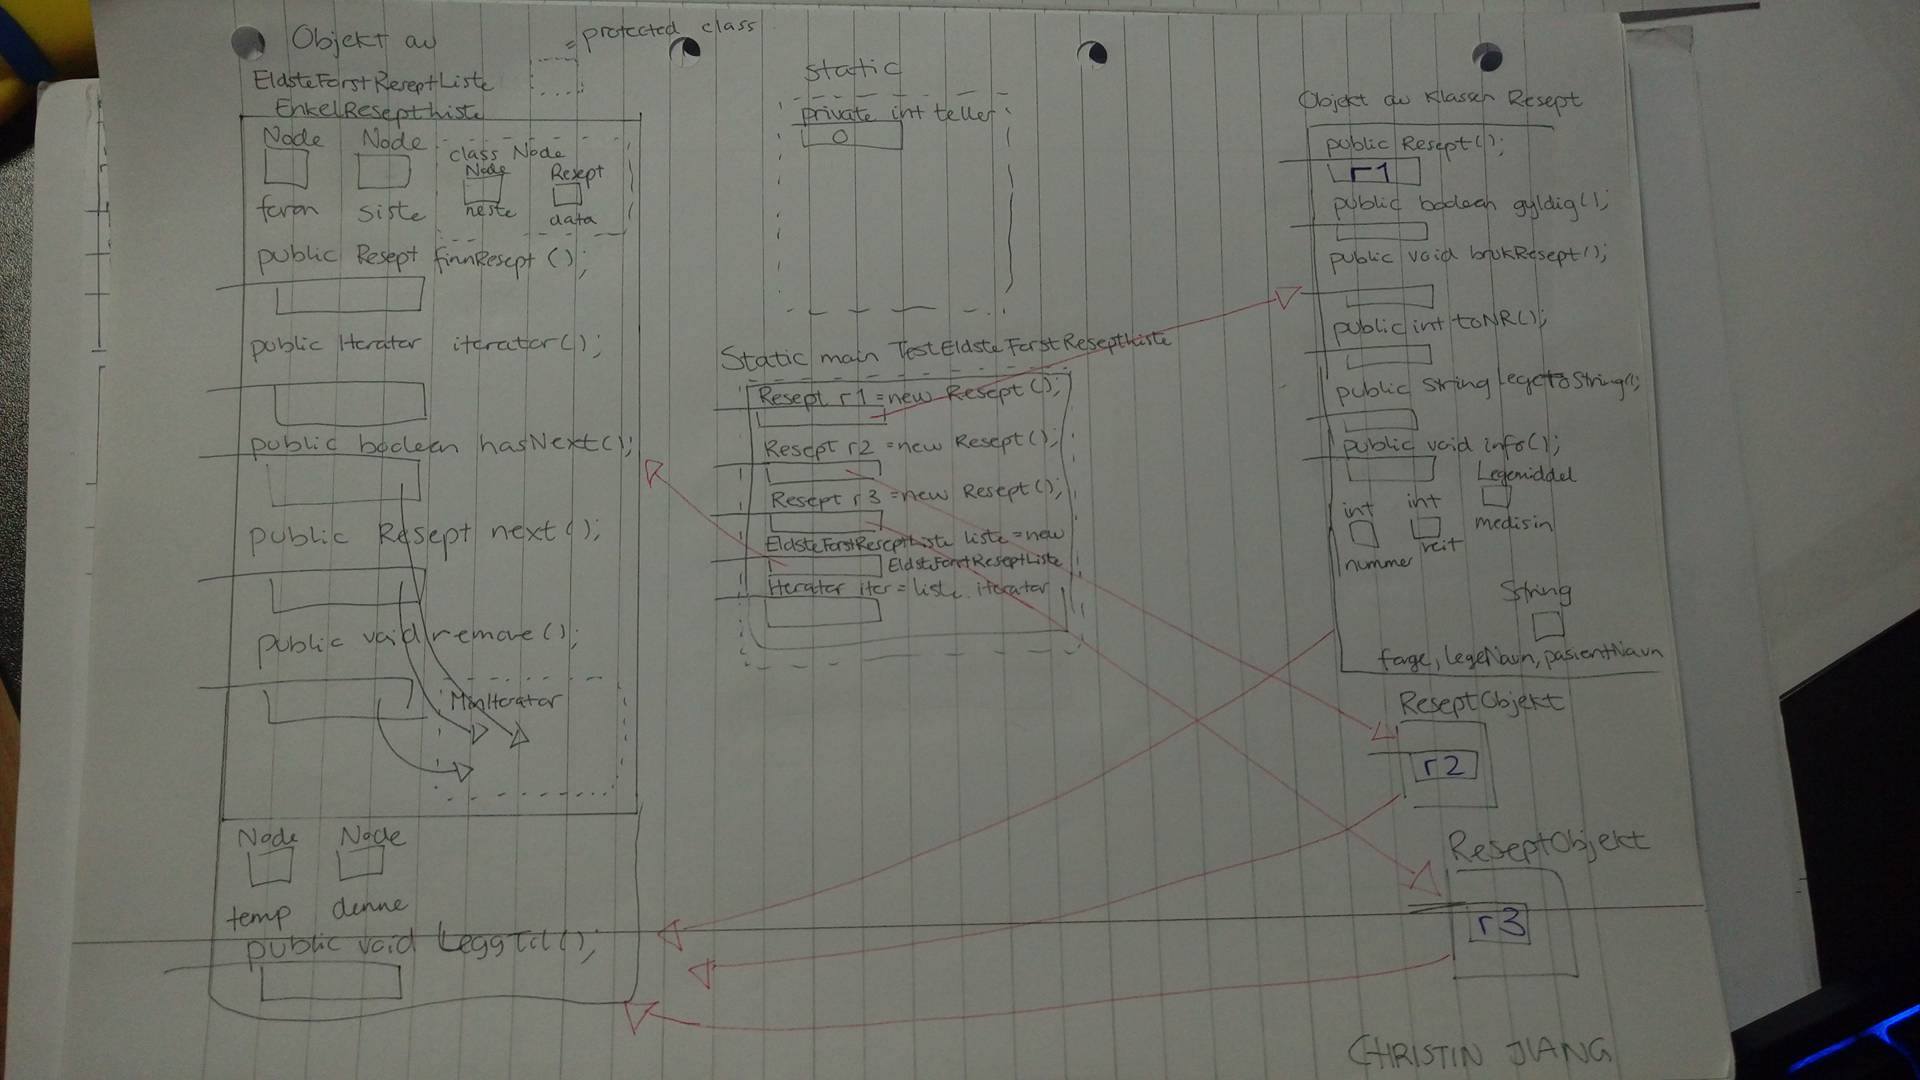 Objekt av
EldsteForstReseptListe
EnkelReseptListe
= protected class
Node
Node
class Node
Node
Resept
foran
siste
neste
data
public Resept finnResept ();
public Iterator iterator();
public boolean hasNext();
public Resept next();
public void remove();
MinIterator
Node
Node
temp
denne
public void LeggTil();
static
private int teller
0
Static main TestEldsteForstReseptListe
Resept r1 = new Resept ();
Resept r2 = new Resept();
Resept r3 = new Resept();
EldsteForstReseptListe liste = new
EldstForstReseptListe
Iterator iter = liste.iterator
Objekt av Klassen Resept
public Resept();
r1
public boolean gyldig();
public void brukResept();
public int toNR();
public String legetoString();
public void info();
int
int
Legemiddel
nummer
reit
medisin
String
farge, LegeNavn, pasientNavn
ReseptObjekt
r2
ReseptObjekt
r3
CHRISTIN JIANG